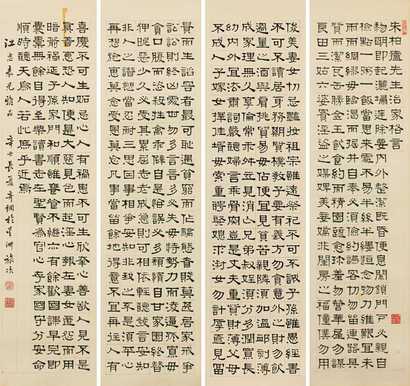 朱柏廬先生治家格言
黎明即起灑掃庭除要內外整潔既昏便息關鎖門戶必親自
檢點一粥一飯當思來處不易半絲半縷恆念物力維艱宜未
雨而綢繆毋臨渴而掘井自奉必須儉約宴客切勿留連器具
質而潔瓦缶勝金玉飲食約而精園蔬愈珍饈勿營華屋勿謀
良田三姑六婆實淫盜之媒婢美妾嬌非閨房之福童僕勿用
俊美妻妾切忌豔妝祖宗雖遠祭祀不可不誠子孫雖愚經書
不可不讀居身務期質樸教子要有義方勿貪意外之財勿飲
過量之酒與肩挑貿易勿佔便宜見貧苦親鄰須加溫卹刻薄
成家理無久享倫常乖舛立見消亡兄弟叔姪須分多潤寡長
幼內外宜法肅辭嚴聽婦言乖骨肉豈是丈夫重貲財薄父母
不成人子嫁女擇佳婿毋索重聘娶媳求淑女勿計厚奩見富
貴而生諂容者最可恥遇貧窮而作驕態者賤莫甚居家戒爭
訟訟則終凶處世戒多言言多必失毋恃勢力而凌逼孤寡毋
貪口腹而恣殺牲禽乖僻自是悔誤必多頹惰自甘家道難成
狎暱惡少久必受其累屈志老成急則可相依輕聽發言安知
非人之譖訴當忍耐三思因事相爭焉知非我之不是須平心
再想施惠無念受恩莫忘凡事當留餘地得意不宜再往人有
喜慶不可生妒忌心人有禍患不可生欣幸心善欲人見不是
真善惡恐人知便是大惡見色而起淫心報在妻女匿怨而用
暗箭禍延子孫家門和順雖饔飧不繼亦有餘歡國課早完即
囊橐無餘自得至樂讀書志在聖賢為官心存君國守分安命
順時聽天為人若此庶乎近焉